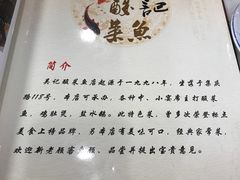 記
酸
菜魚
简介
吴记酸菜鱼店起源于一九九八年，坐落于集庆
路118号，本店可承办，各种中、小宴席主打酸菜
鱼、鸡肚煲、盐水鹅。此特色菜，曾多次荣登标点
美食上榜品牌，另本店有美味可口，经典家常菜，
欢迎新老顾客屈临、品尝并提出宝贵意见。